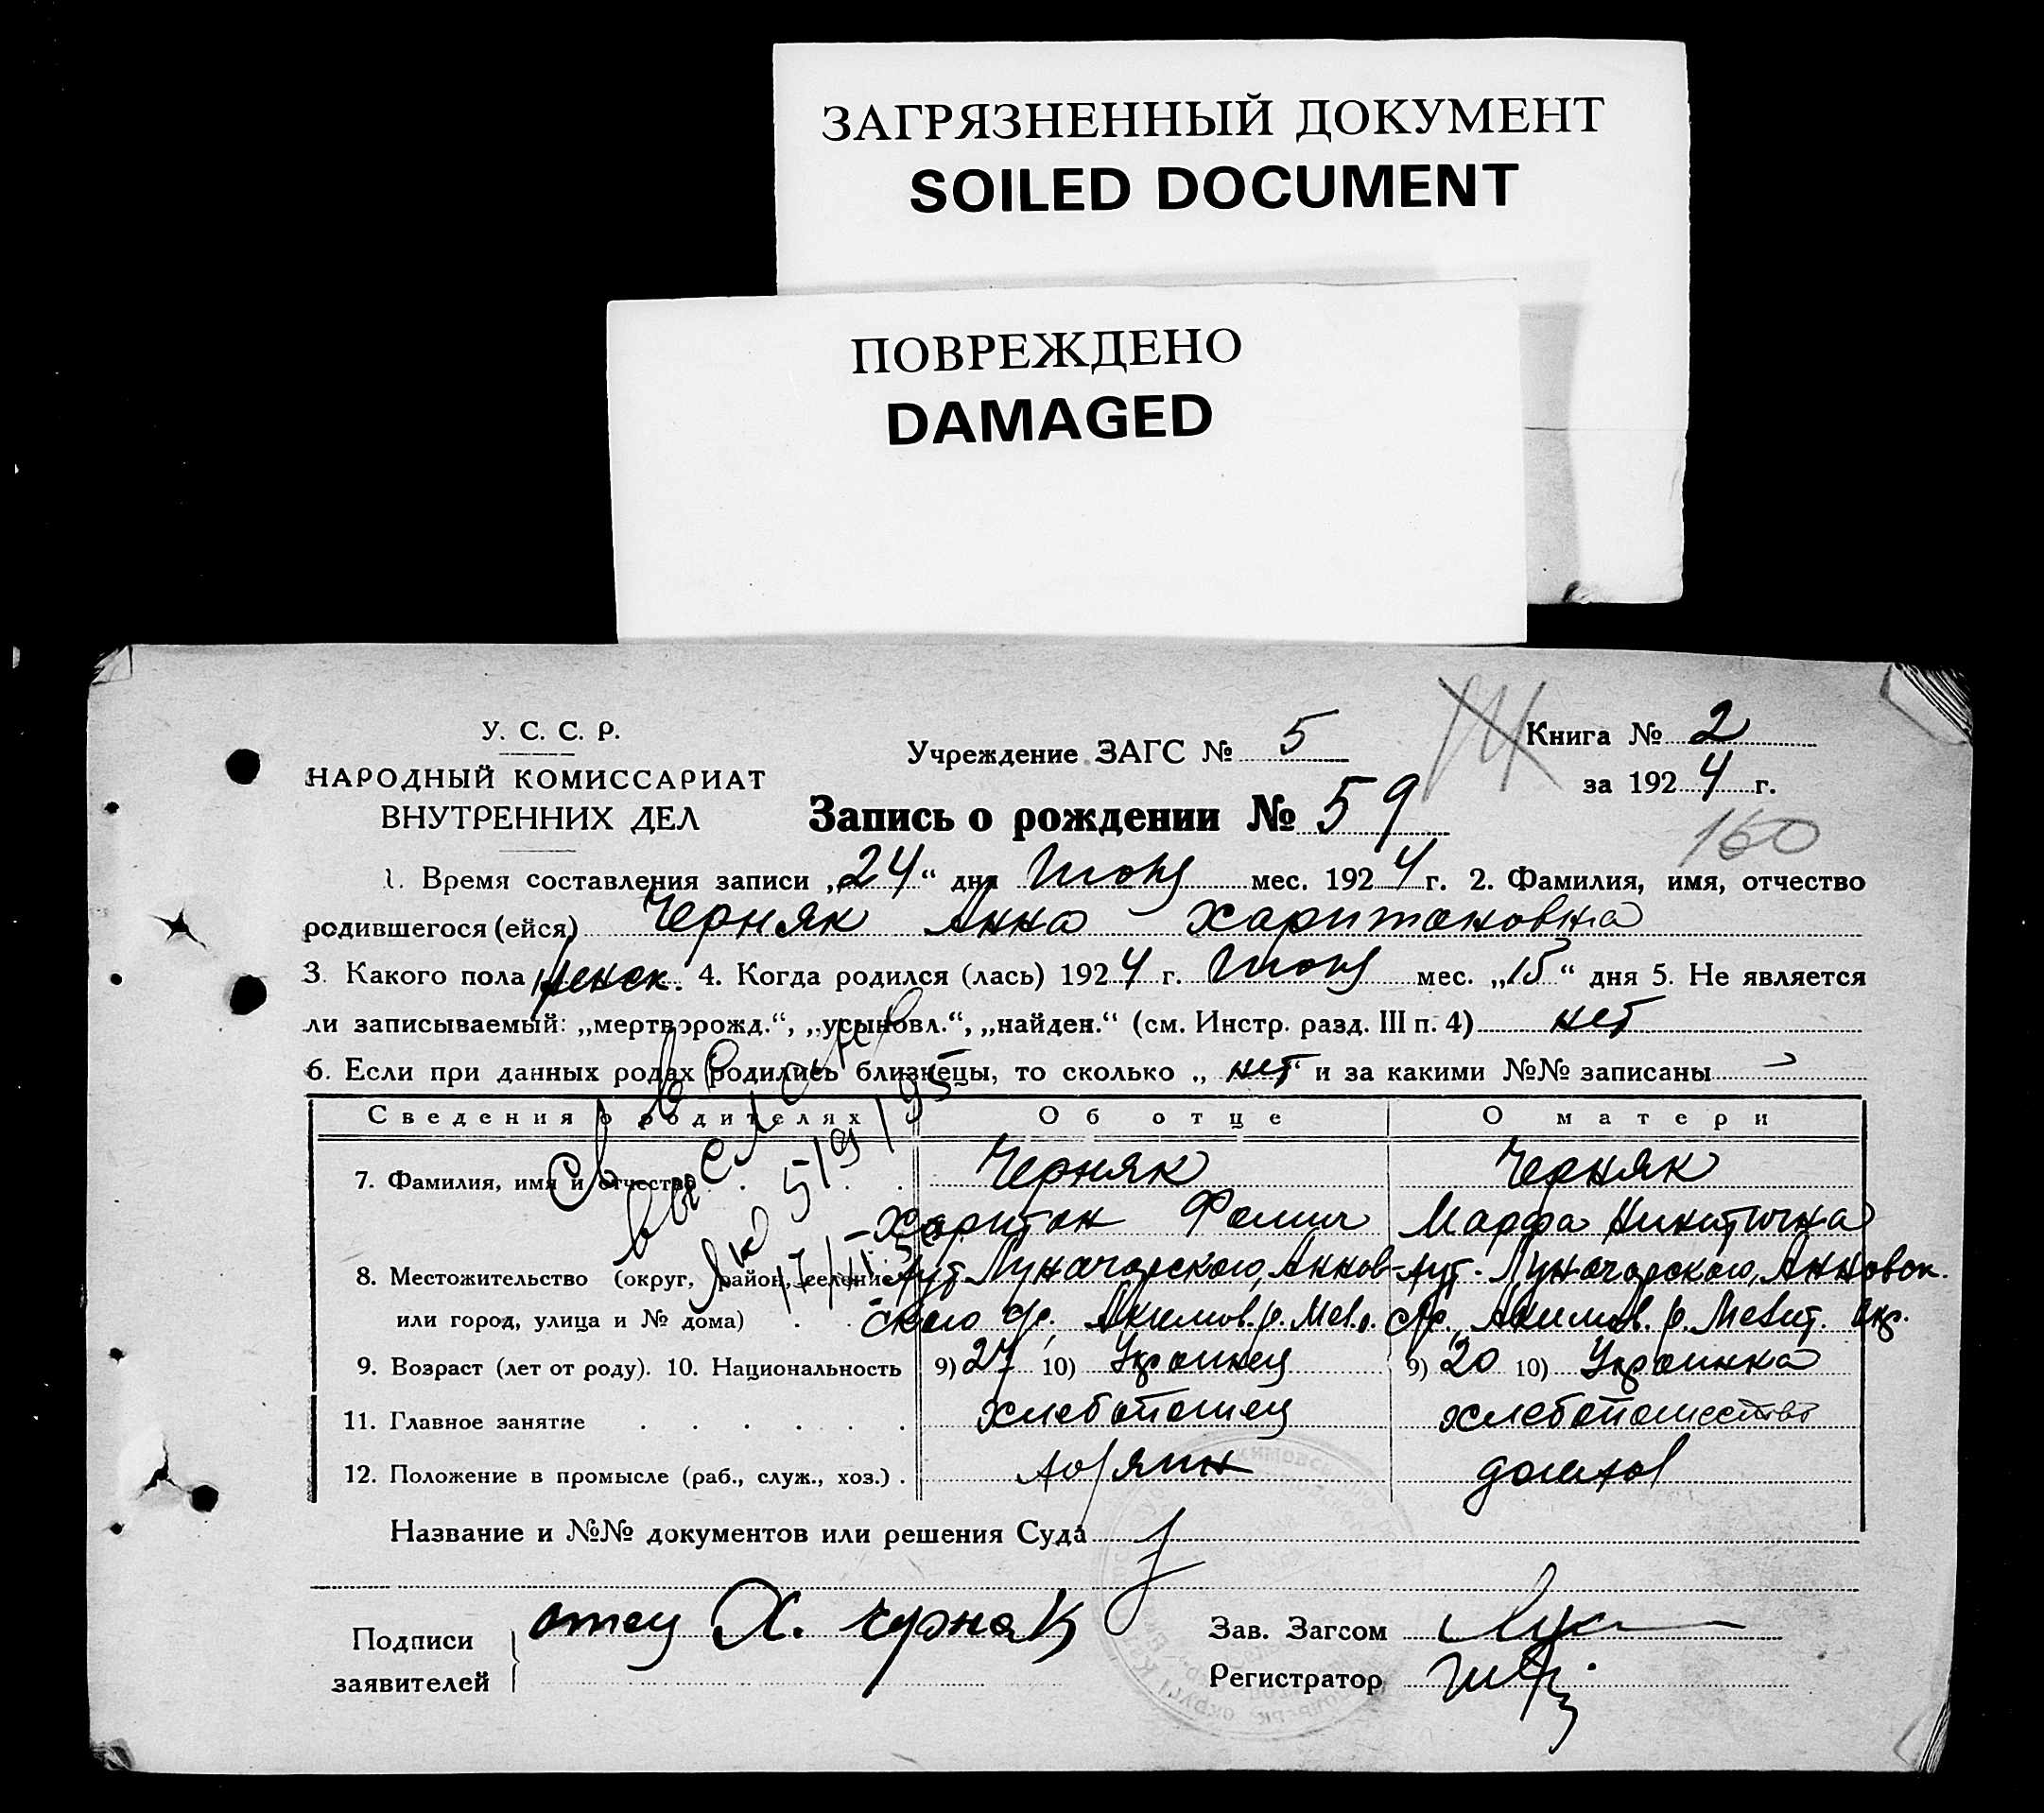 ЗАГРЯЗНЕННЫЙ ДОКУМЕНТ
SOILED DOCUMENT
ПОВРЕЖДЕНО
DAMAGED
У. С. С. Р.
НАРОДНЫЙ КОМИССАРИАТ
ВНУТРЕННИХ ДЕЛ
Учреждение ЗАГС № 5
Книга № 2
за 1924 г.
Запись о рождении № 59
160
1. Время составления записи „24“ дня Июня мес. 1924 г. 2. Фамилия, имя, отчество
родившегося (ейся) Черняк Анна Харитоновна
3. Какого пола женск. 4. Когда родился (лась) 1924 г. Июня мес. „15“ дня 5. Не является
ли записываемый: „мертворожд.“, „усыновл.“, „найден.“ (см. Инстр. разд. III п. 4) нет
6. Если при данных родах родились близнецы, то сколько „ нет “ и за какими №№ записаны
Сведения о родителях Об отце О матери
7. Фамилия, имя и отчество Черняк Черняк
Харитон Фомич Марфа Никитична
8. Местожительство (округ, район, селение хут. Луначарского, Аннов- хут. Луначарского, Анновск.
или город, улица и № дома) ского с/с. Акимов. р. Мел. с/с. Акимов. р. Мелит. окр.
9. Возраст (лет от роду). 10. Национальность 9) 27 10) Украинец 9) 20 10) Украинка
11. Главное занятие хлебопашец хлебопашество
12. Положение в промысле (раб., служ., хоз.) хозяин домхоз
Название и №№ документов или решения Суда
Подписи заявителей отец Х. Чорнак
Зав. Загсом
Регистратор